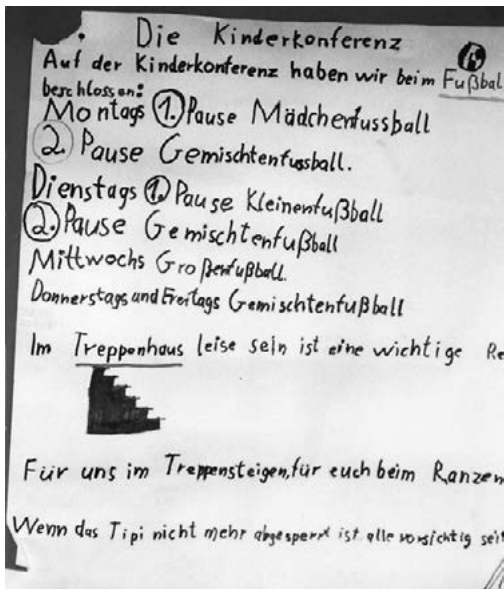 Die Kinderkonferenz
Auf der Kinderkonferenz haben wir beim Fußbal
beschlossen:
Montags 1. Pause Mädchenfussball
2. Pause Gemischtenfussball.
Dienstags 1. Pause Kleinenfußball
2. Pause Gemischtenfußball
Mittwochs Großenfußball.
Donnerstags und Freitags Gemischtenfußball
Im Treppenhaus leise sein ist eine wichtige Re
Für uns im Treppensteigen, für euch beim Ranzen
Wenn das Tipi nicht mehr abgesperrt ist alle vorsichtig sei